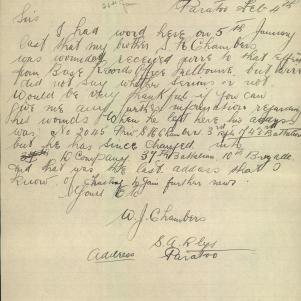 Paratoo Feb 4th
Sir
I had word here on 5th January
last that my brother S R Chambers
was wounded received wire to that effect
from Base Records Office Melbourne but wire
did not say whether serious or not
Would be very thankful if you can
give me any further information regarding
his wounds When he left here his address
was No 2045 Priv S R Chambers 3rd rfts of 43rd Battalion
but he has since changed into
D Company 37th Battalion 10th Brigade
and that was the last address that I
know of trusting to gain further news
Yours
W. J. Chambers
Address S.A. Rlys
Paratoo